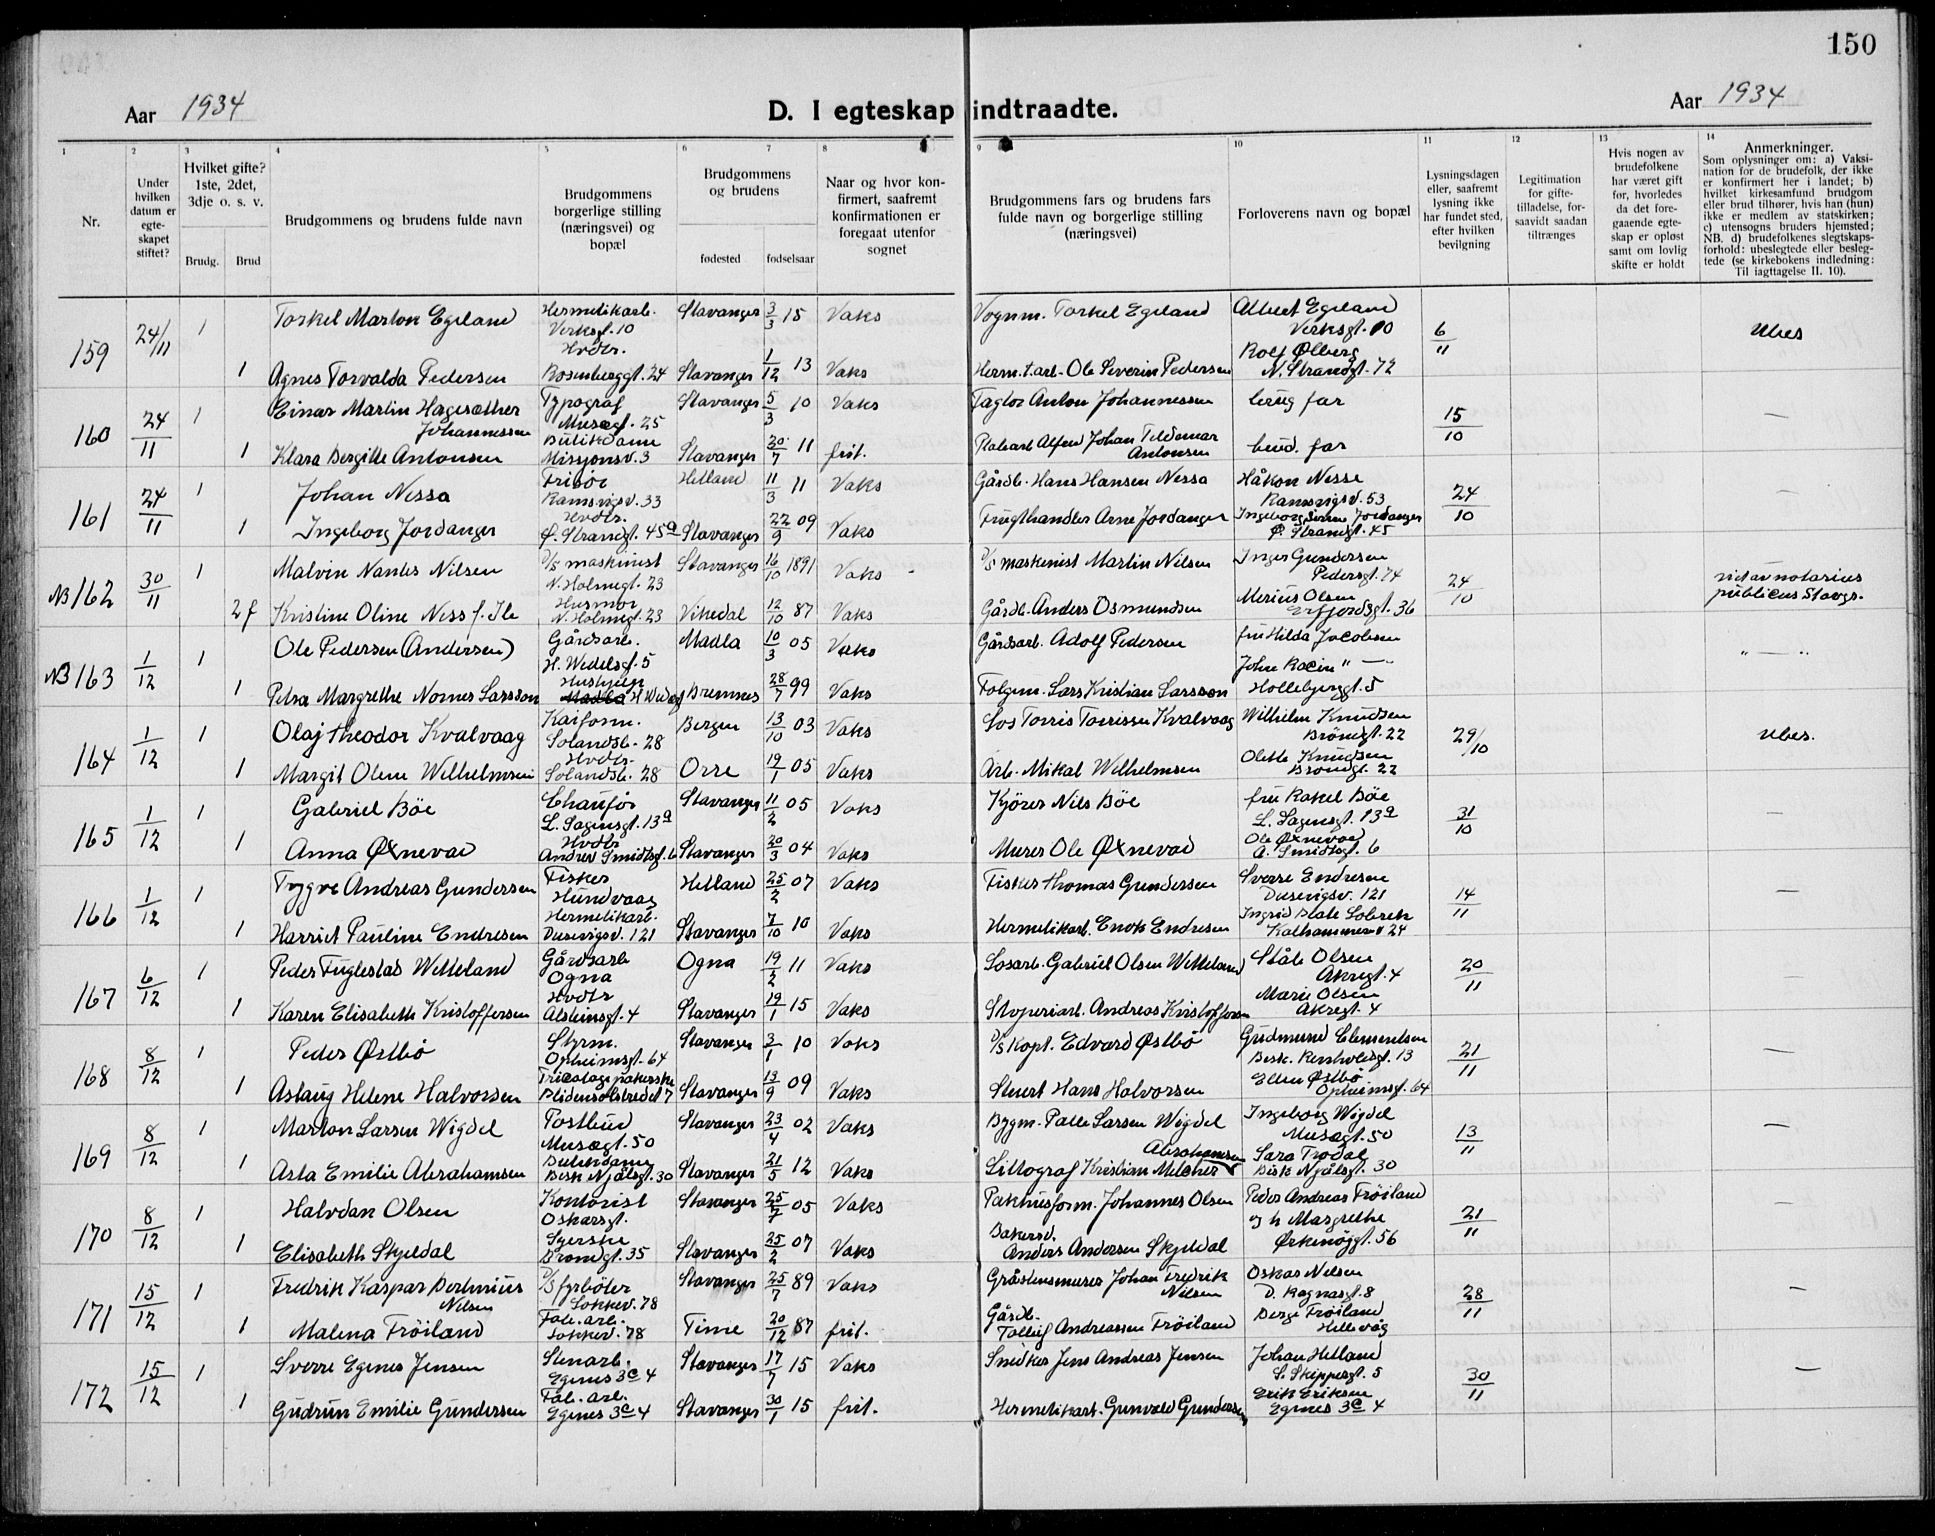 150
Aar 1934
D. I egteskap indtraadte.
Aar 1934
1
2
3
4
5
6
7
8
9
10
11
12
13
14
Nr.
Under hvilken datum er egte-skapet stiftet?
Hvilket gifte? 1ste, 2det, 3dje o. s. v.
Brudg.
Brud
Brudgommens og brudens fulde navn
Brudgommens borgerlige stilling (næringsvei) og bopæl
Brudgommens og brudens
fødested
fødselsaar
Naar og hvor kon-firmert, saafremt konfirmationen er foregaat utenfor sognet
Brudgommens fars og brudens fars fulde navn og borgerlige stilling (næringsvei)
Forloverens navn og bopæl
Lysningsdagen eller, saafremt lysning ikke har fundet sted, efter hvilken bevilgning
Legitimation for gifte-tilladelse, for-saavidt saadan tiltrænges
Hvis nogen av brudefolkene har været gift før, hvorledes da det fore-gaaende egte-skap er opløst samt om lovlig skifte er holdt
Anmerkninger.
Som oplysninger om: a) Vaksi-nation for de brudefolk, der ikke er konfirmert her i landet; b) hvilket kirkesamfund brudgom eller brud tilhører, hvis han (hun) ikke er medlem av statskirken; c) utensogns bruders hjemsted; NB. d) brudefolkenes slegtskaps-forhold: ubeslegtede eller besleg-tede (se kirkebokens indledning: Til iagttagelse II. 10).
159 24/11 1 Torkel Marton Egeland Hermetikarb. Verksgt. 10 Stavanger 3/3 15 Vaks Vognm. Torkel Egeland Albert Egeland Verksgt. 10 6/11 Ubes
1 Agnes Torvalda Pedersen Hvdtr. Rosenberggt. 24 Stavanger 1/12 13 Vaks Herm.t.arb. Ole Severin Pedersen Rolf Ølberg N. Strandgt. 72
160 24/11 1 Einar Martin Hagesæther Johannessen Typograf Musægt. 25 Stavanger 5/3 10 Vaks Anton Johannessen brug far 15/10 —
1 Klara Bergitte Antonsen Butikdame Missjonsv. 3 Stavanger 20/7 11 frit. Alfred Johan Antonsen brud. far
161 24/11 1 Johan Nessa Frisør Ramsvigsv. 33 Hetland 11/3 11 Vaks Gårdb. Hans Hansen Nessa Håkon Nesse Ramsvigsv. 53 24/10 —
1 Ingeborg Jordanger Hvdtr. Ø. Strandgt. 45a Stavanger 22/9 09 Vaks Frugthandler Arne Jordanger Ingeborg Jordanger Ø. Strandgt. 45
NB 162 30/11 1 Malvin Nantes Nilsen D/S maskinist N. Holmegt. 23 Stavanger 16/10 1891 Vaks D/S maskinist Martin Nilsen Inger Gundersen Pedersgt. 74 24/10 vict av notarius publicus Stavgr.
2 f Kristine Oline Ness f. Ile Husmor N. Holmegt. 23 Vikedal 12/10 87 Vaks Gårdb. Anders Osmundsen Merius Olsen Erfjordsgt. 36
NB 163 1/12 1 Ole Pedersen (Andersen) Gårdsarb. H. Wedelsgt. 5 Madla 10/3 05 Vaks Gårdsarb. Adolf Pedersen fru Hilda Jacobsen " — "
1 Petra Margrethe Nornes Larsson Hushjelp H Bremnes 28/7 99 Vaks Lars Kristian Larsson John " — Hollebyggt. 5
164 1/12 1 Olaf Theodor Kvalvaag Kaiform. Solandsb. 28 Bergen 13/10 03 Vaks Los Torris Torrissen Kvalvaag Wilhelm Knudsen Brøndgt. 22 29/10 Ubes.
1 Margit Olene Wilhelmsen Hvdtr. Solandsb. 28 Orre 19/1 05 Vaks Arb. Mikal Wilhelmsen Olette Knudsen Brøndgt. 22
165 1/12 1 Gabriel Böe Chauför L. Sagensgt. 13a Stavanger 11/2 05 Vaks Kjörer Nils Böe fru Rakel Böe L. Sagensgt. 13a 31/10 —
1 Anna Øxnevad Hvdtr Andrew Smidtsgt. 6 Stavanger 20/3 04 Vaks Murer Ole Øxnevad Ole Øxnevad A. Smidtsgt. 6
166 1/12 1 Trygve Andreas Gundersen Fisker Hundvaag Hetland 25/2 07 Vaks Fisker Thomas Gundersen Sverre Endresen Dusevigsv. 121 14/11 —
1 Harriet Pauline Endresen Hermetikarb. Dusevigsv. 121 Stavanger 7/10 10 Vaks Hermetikarb. Enok Endresen Ingrid Kalhammerv 24
167 6/12 1 Peder Fuglestad Wetteland Gårdsarb Ogna Ogna 19/2 11 Vaks Gabriel Olsen Wetteland Ståle Olsen Akregt. 4 20/11 —
1 Karen Elisabeth Kristoffersen Hvdtr Alsteinsgt. 4 Stavanger 19/1 15 Vaks Støperiarb. Andreas Kristoffersen Marie Olsen Akregt. 4
168 8/12 1 Peder Østbö Styrm. Opheimsgt. 64 Stavanger 3/1 10 Vaks D/S Kapt. Edvard Østbö Gudmund Clementsen Bisk. Reinholdsgt. 13 21/11 —
1 Aslaug Helene Halvorsen Blidensolstredet 7 Stavanger 13/9 09 Vaks Stuert Hans Halvorsen Ellen Østbö Opheimsgt. 64
169 8/12 1 Marton Larsen Wigdel Postbud Musægt. 50 Stavanger 23/4 02 Vaks Bygm. Palle Larsen Wigdel Ingeborg Wigdel Musægt. 50 13/11 —
1 Asta Emilie Abrahamsen Butikdame Bisk Njålsgt. 30 Stavanger 21/5 12 Vaks Littograf Kristian Melcher Abrahamsen Sara Trodal Bisk Njålsgt. 30
170 8/12 1 Halvdan Olsen Kontorist Oskarsgt. Stavanger 25/7 05 Vaks Pakhusform. Johannes Olsen Peder Andreas Fröiland og h Margrethe Ørkenöygt. 56 21/11
1 Elisabeth Skjeldal Syerske Brøndgt. 35 Stavanger 25/2 07 Vaks Bakersv. Anders Andersen Skjeldal
171 15/12 1 Fredrik Kaspar Bertinius Nilsen D/S fyrböter Sokkev. 78 Stavanger 25/7 89 Vaks Gråstensmurer Johan Fredrik Nilsen Oskar Nilsen D. Ragnasgt. 8 28/11 —
1 Malena Fröiland Fab. arb. Sokkev. 78 Time 20/12 87 frit. Gårdb. Tollef Andreassen Fröiland Berge Fröiland Hillevåg
172 15/12 1 Sverre Egenes Jensen Stenarb. Egenes 3c 4 Stavanger 17/7 15 Vaks Snedker Jens Andreas Jensen Johan Hetland S. Skippergt. 5 30/11 —
1 Gudrun Emilie Gundersen Fab. arb. Egenes 3c 4 Stavanger 30/1 15 frit. Hermetikarb. Gunvald Gundersen Erik Eriksen Egenes 3c 4